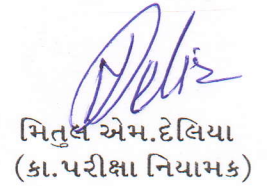 મિતુલ એમ.દેલિયા
(કા.પરીક્ષા નિયામક)